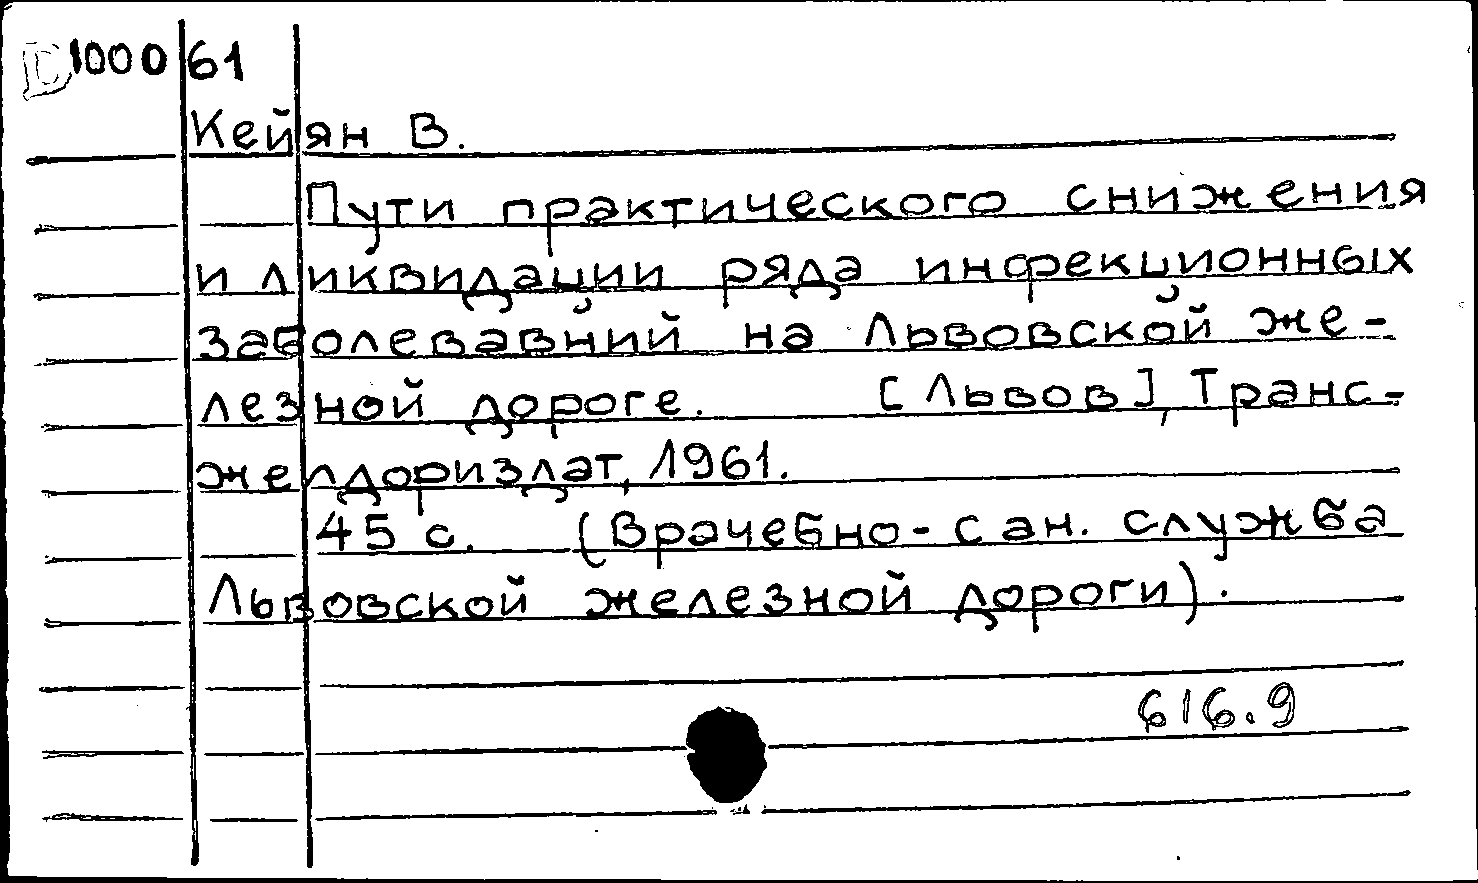 D1000 61
Кейян В.
Пути практического снижения
и ликвидации ряда инфекционных
заболеваний на Львовской же-
лезной дороге. [Львов], Транс-
желдориздат, 1961.
45 с. (Врачебно-сан. служба
Львовской железной дороги).
616.9